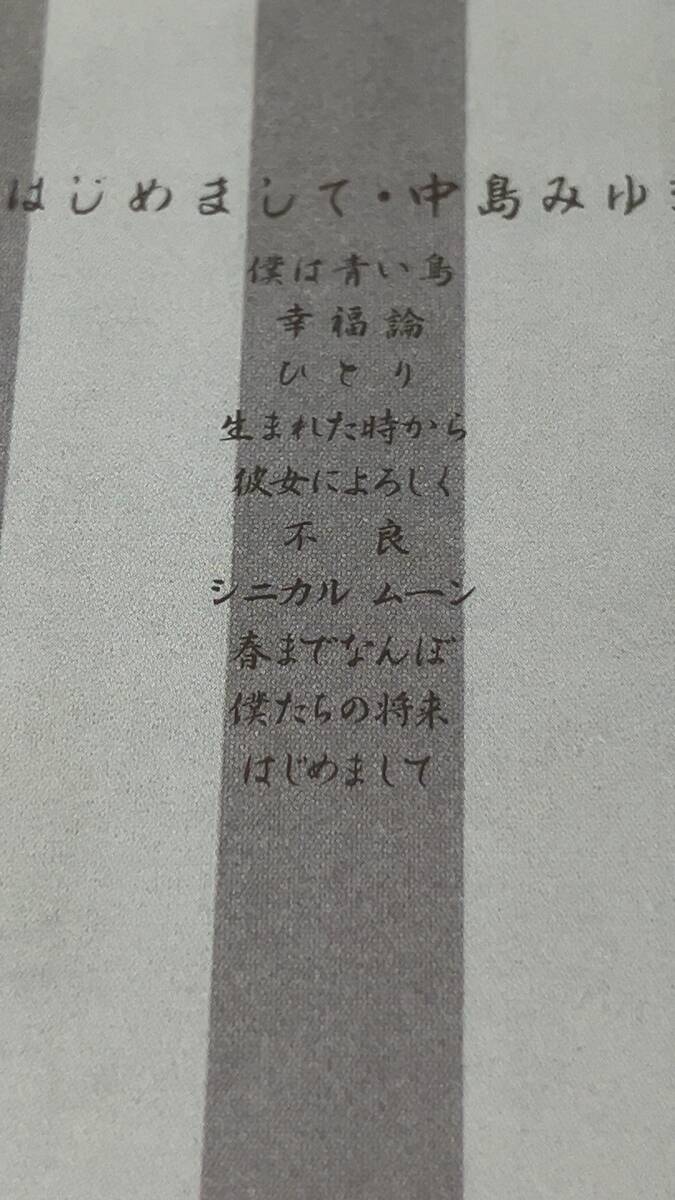 はじめまして・中島みゆ
僕は青い鳥
幸福論
ひとり
生まれた時から
彼女によろしく
不 良
シニカル ムーン
春までなんぼ
僕たちの将来
はじめまして